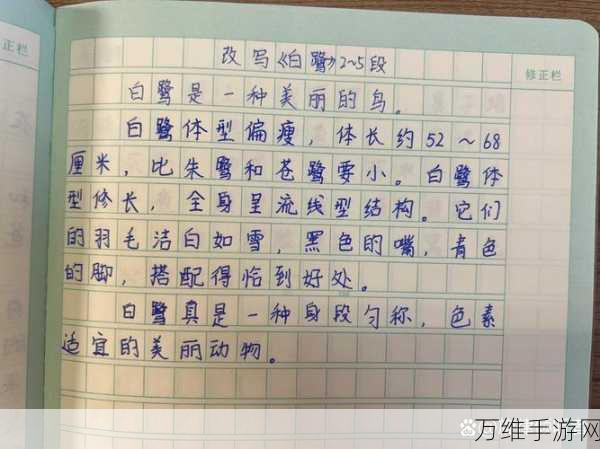 正栏
修正栏
改写《白鹭》2~5段
白鹭是一种美丽的鸟。
白鹭体型偏瘦，体长约52～68
厘米，比朱鹭和苍鹭要小。白鹭体
型修长，全身呈流线型结构。它们
的羽毛洁白如雪，黑色的嘴，青色
的脚，搭配得恰到好处。
白鹭真是一种身段匀称，色素
适宜的美丽动物。
万维手游网